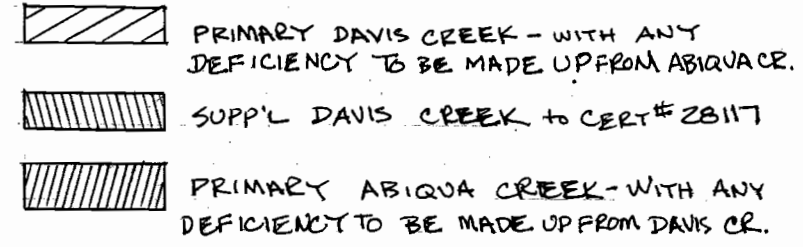 PRIMARY DAVIS CREEK - WITH ANY
DEFICIENCY TO BE MADE UP FROM ABIQUA CR.
SUPP'L DAVIS CREEK to CERT # 28117
PRIMARY ABIQUA CREEK - WITH ANY
DEFICIENCY TO BE MADE UP FROM DAVIS CR.